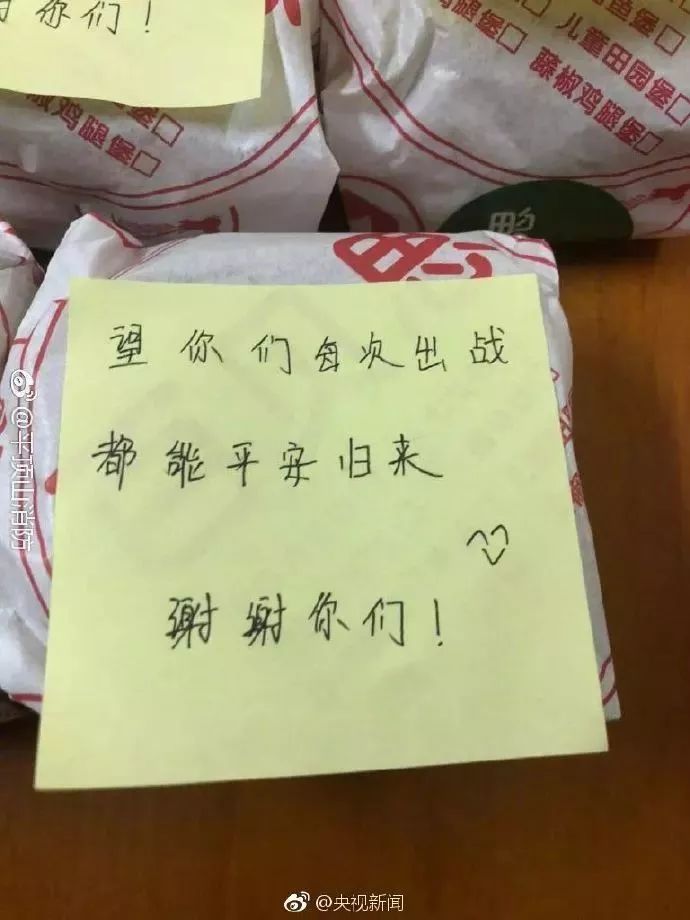 你们！
椒鸡腿堡□
鱼堡□
儿童田园堡□
藤椒鸡腿堡□
望你们每次出战
都能平安归来
谢谢你们！
@平顶山消防
@央视新闻